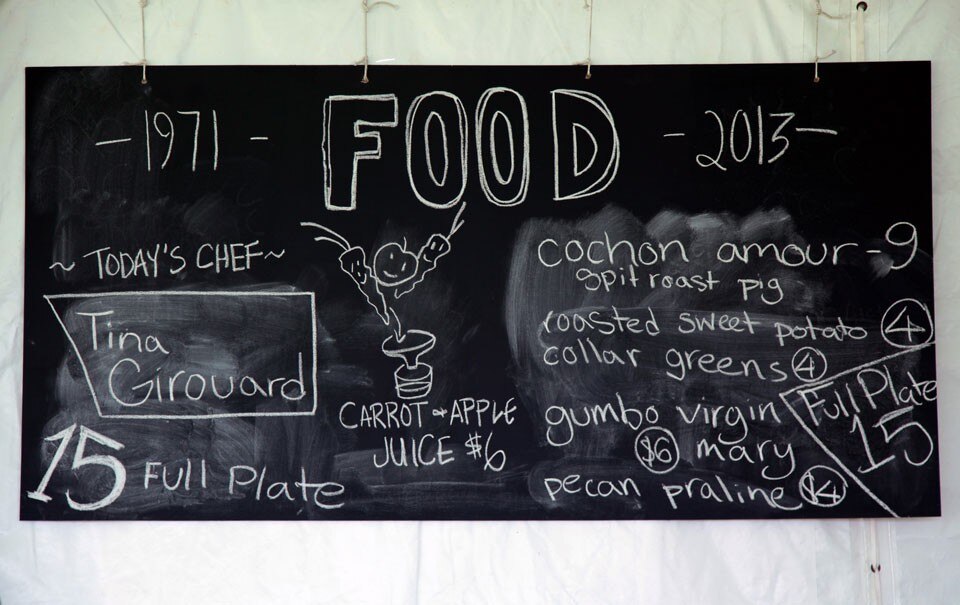 -1971-
FOOD
-2013-
~ TODAY'S CHEF~
Tina
Girouard
15 Full Plate
CARROT & APPLE
JUICE $6
cochon amour-9
spit roast pig
roasted sweet potato 4
collar greens 4
gumbo virgin
$6 mary
pecan praline $4
Full Plate
15